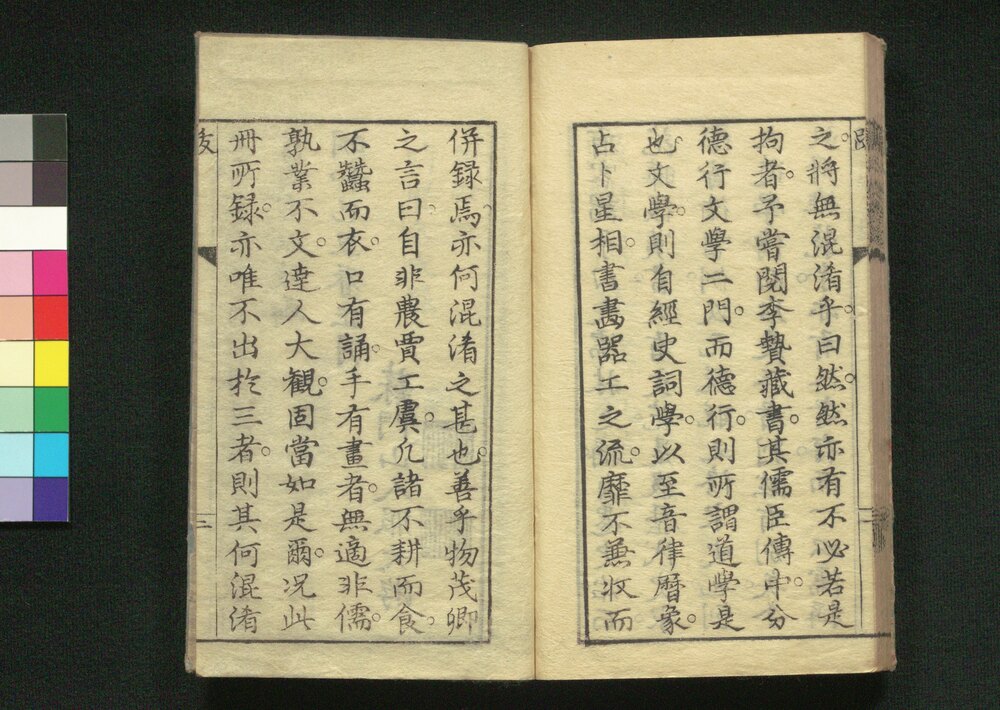 之。將無混淆乎。曰然。然亦有不必若是
拘者。予嘗閱李贄藏書。其儒臣傳中。分
德行文學二門。而德行。則所謂道學是
也。文學。則自經史詞學。以至音律曆象。
占卜星相。書畵器工之流。靡不兼收而
併録焉。亦何混淆之甚也。善乎物茂卿
之言曰。自非農賈工虞。凢諸不耕而食。
不蠶而衣。口有誦。手有畫者。無適非儒。
孰業不文。達人大觀。固當如是爾。况此
冊所録。亦唯不出於三者。則其何混淆
二